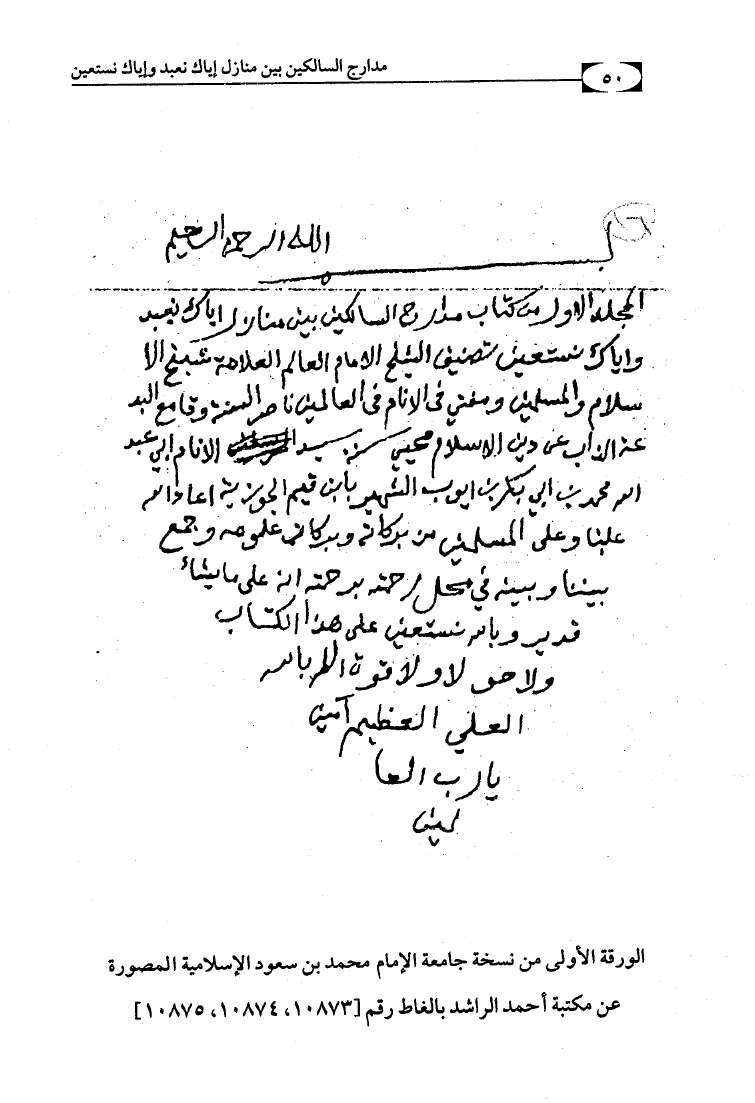 مدارج السالكين بين منازل إياك نعبد وإياك نستعين
٥٠
بسم الله الرحمن الرحيم
المجلد الاول من كتاب مدارج السالكين بين منازل اياك نعبد
واياك نستعين تصنيف الشيخ الامام العالم العلامة شيخ الا
سلام والمسلمين ومفتي الانام في العالمين ناصر السنة وقامع البد
عة الذاب عن دين الاسلام محيي سنة سيد الانام ابي عبد
الله محمد بن ابي بكر بن ايوب الشهير بابن قيم الجوزية اعاد الله
علينا وعلى المسلمين من بركاته وبركات علومه وجمع
بيننا وبينه في محل رحمته برحمته انه على ما يشاء
قدير وبالله نستعين على هذا الكتاب
ولا حول ولا قوة الا بالله
العلي العظيم آمين
يا رب العا
لمين
الورقة الأولى من نسخة جامعة الإمام محمد بن سعود الإسلامية المصورة
عن مكتبة أحمد الراشد بالغاط رقم [١٠٨٧٣، ١٠٨٧٤، ١٠٨٧٥]